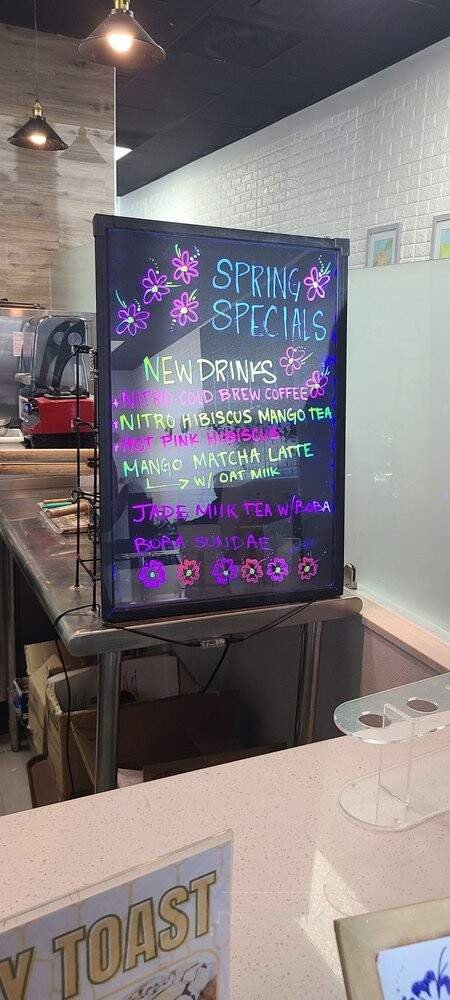 SPRING
SPECIALS
NEW DRINKS
+NITRO COLD BREW COFFEE
+NITRO HIBISCUS MANGO TEA
+HOT PINK HIBISCUS
MANGO MATCHA LATTE
W/ OAT MILK
JADE MILK TEA W/BOBA
BOBA SUNDAE
Y TOAST